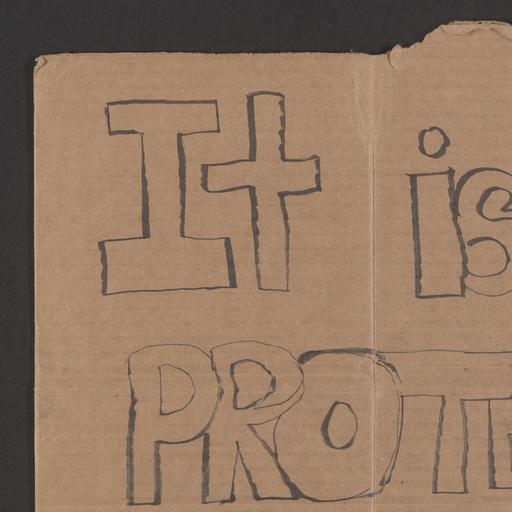 It is
PROTE